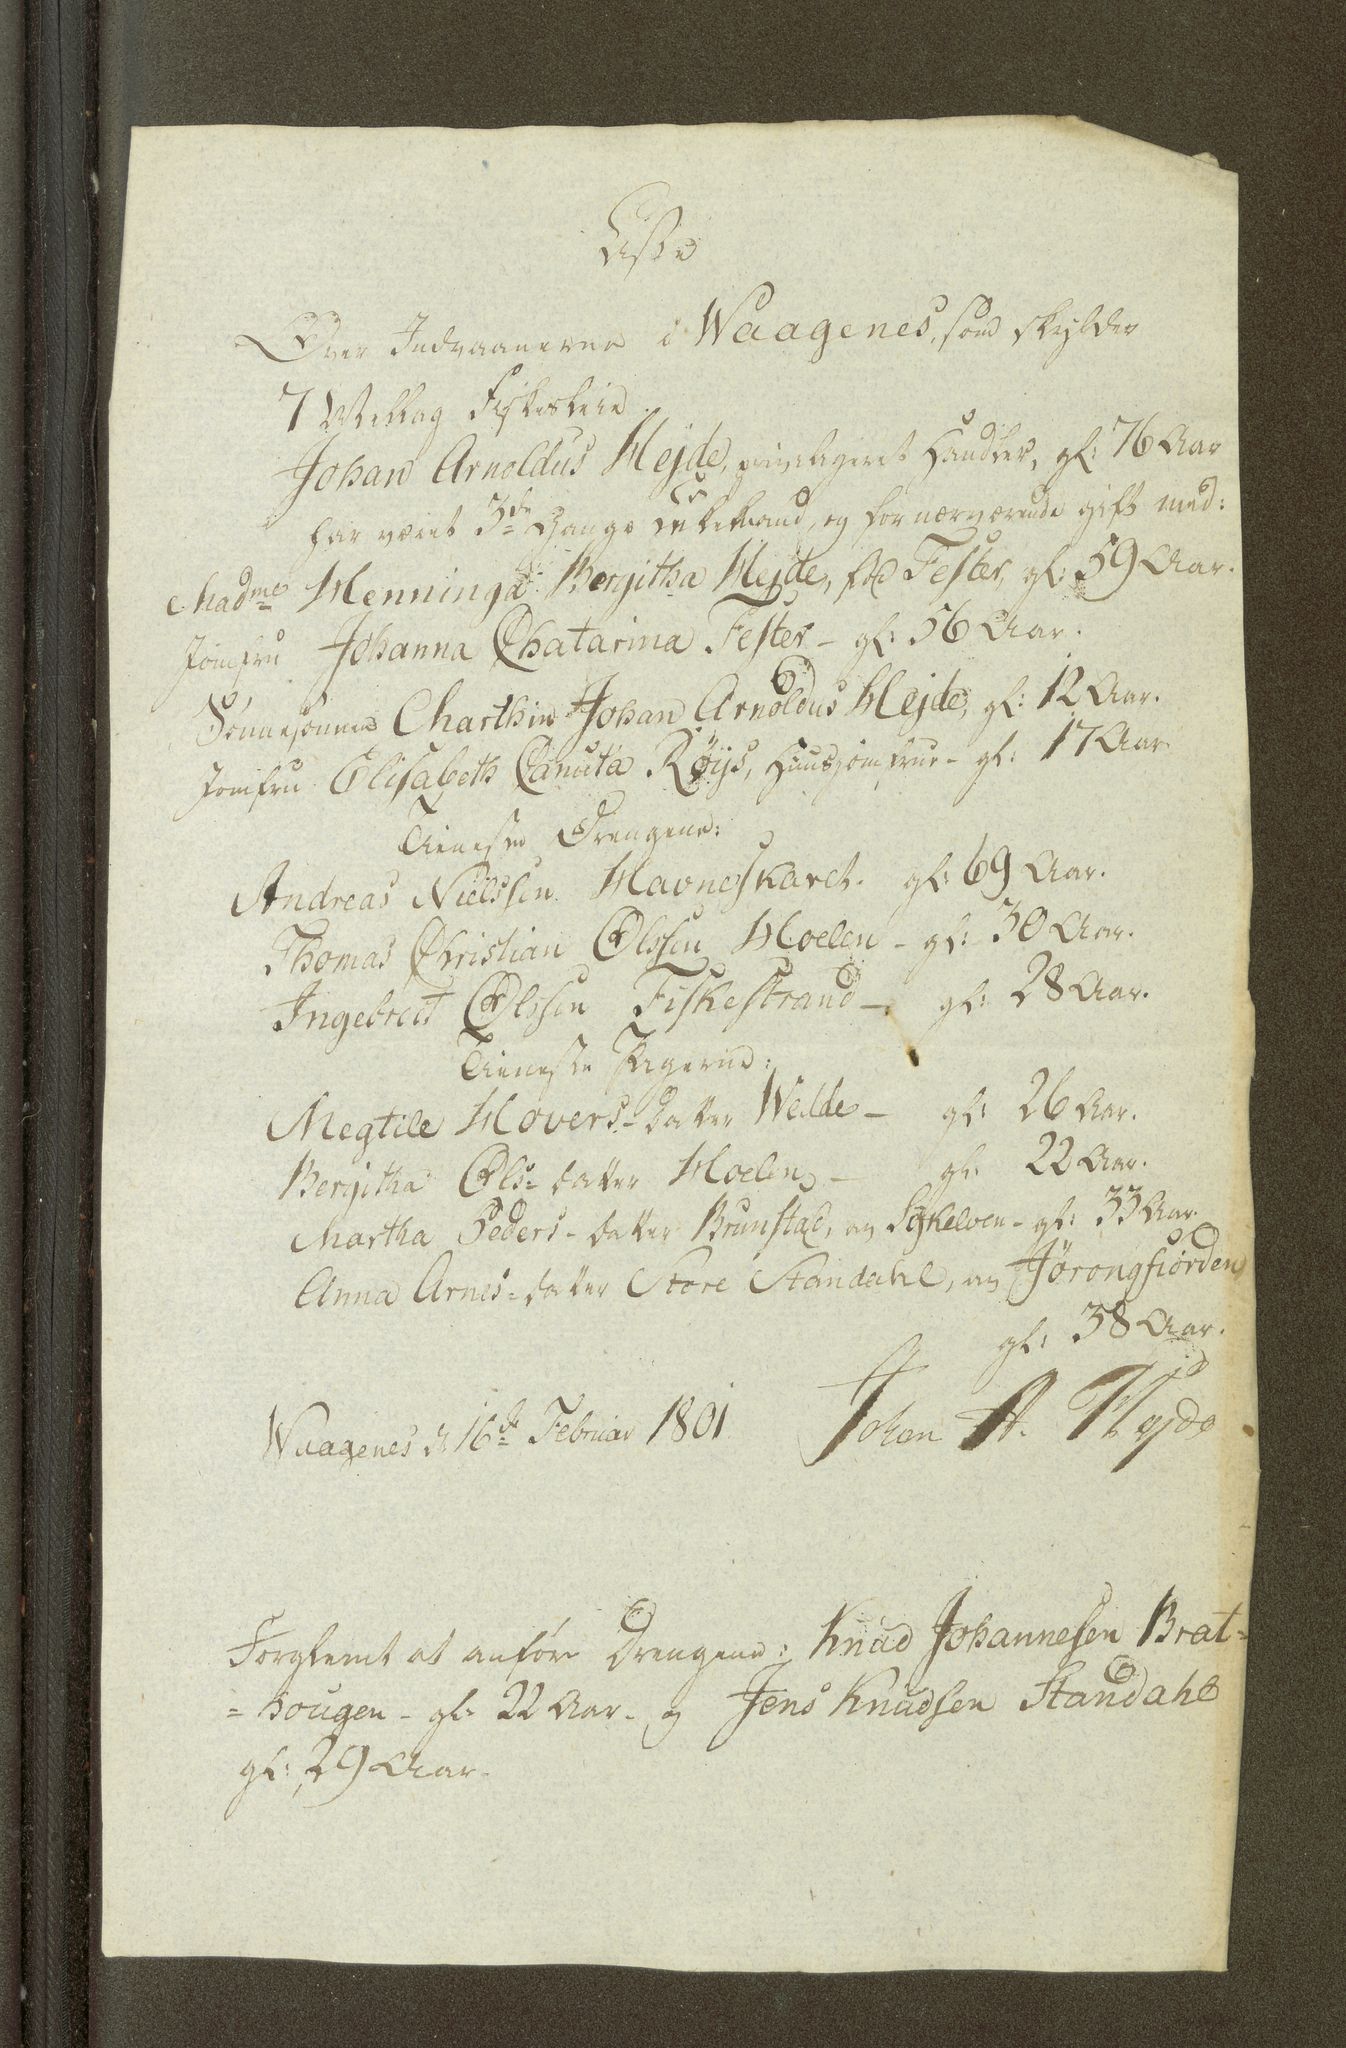 Liste
Over Indvaanerne i Waagenes, som skylder
7 Wellag Fiskeleie
Johan Arnoldus Hejde, privilegeret Handler, gl: 76 Aar
har været 3de Gange Enkemand, og for nærværende gift med:
Madme Henninga Bergitha Hejde, fød Fester, gl: 59 Aar.
Jomfru Johanna Chatarina Fester - gl: 56 Aar.
Sønnesønnen Marthin Johan Arnoldus Hejde, gl: 12 Aar.
Jomfru Elisabeth Canuta Röys, Huusjomfrue - gl: 17 Aar
Tieneste Drengene:
Andreas Nielssen Havneskaret. gl: 69 Aar.
Thomas Christian Olssen Moelen - gl: 30 Aar.
Ingebreet Olssen Fiskestrand - gl: 28 Aar.
Tieneste Pigerne:
Megtile Hovers-datter Welde - gl: 26 Aar.
Bergitha Ols-datter Moelen - gl: 22 Aar.
Martha Peders-datter Brunstad, og Sykelven - gl: 33 Aar.
Anna Arnes-datter Store Standahl, og Jörongfiörden
gl: 38 Aar.
Waagenes d 16de Februar 1801. Johan A. Hejde
Forglemt at anföre Drengene: Knud Johannesen Brat-
=hougen - gl: 22 Aar - og Jens Knudsen Standahl
gl: 29 Aar.